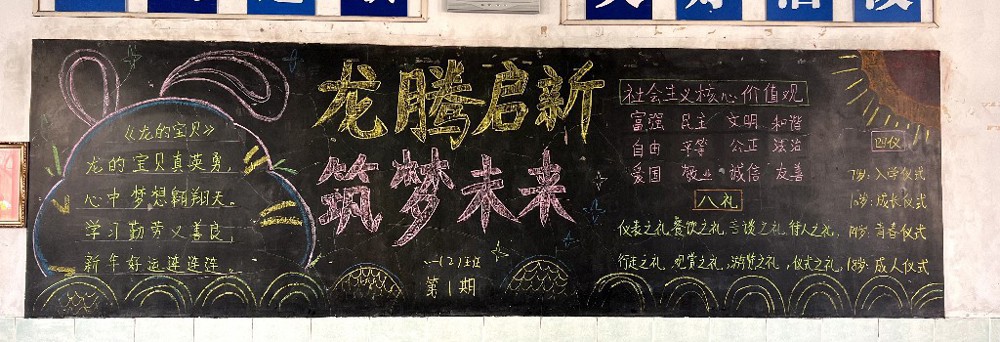 《龙的宝贝》
龙的宝贝真英勇,
心中梦想翱翔天。
学习勤劳又善良,
新年好运连连连。
龙腾启新
筑梦未来
一(2)班
第1期
社会主义核心价值观
富强 民主 文明 和谐
自由 平等 公正 法治
爱国 敬业 诚信 友善
八礼
仪表之礼, 餐饮之礼, 言谈之礼, 待人之礼,
行走之礼, 观赏之礼, 游览之礼, 仪式之礼,
四仪
7岁: 入学仪式
10岁: 成长仪式
14岁: 青春仪式
18岁: 成人仪式